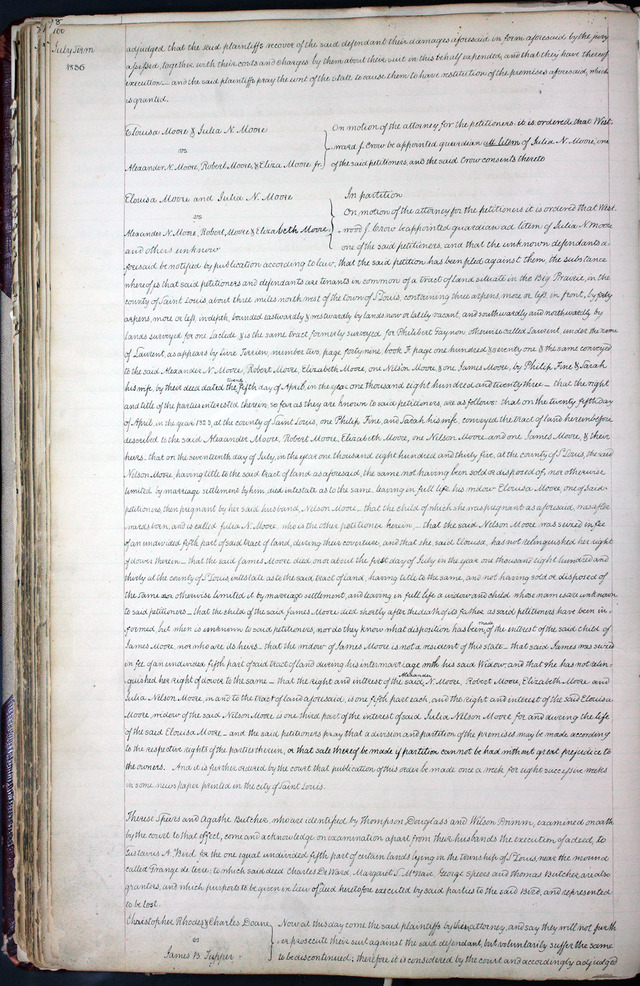 July Term
1836
adjudged that the said plaintiffs recover of the said defendant their damages aforesaid in form aforesaid by the jury
assessed, together with their costs and charges by them about their suit in this behalf expended, and that they have thereof
execution – and the said plaintiffs pray the writ of the state to cause them to have restitution of the premises aforesaid, which
is granted.
Elouisa Moore & Julia N. Moore
vs
Alexander N. Moore, Robert Moore, & Eliza Moore jr.
On motion of the attorney for the petitioners it is ordered that West
ward J. Crow be appointed guardian ad litem of Julia N. Moore, one
of the said petitioners, and the said Crow consents thereto
Elouisa Moore and Julia N. Moore
vs
Alexander N. Moore, Robert Moore, & Elizabeth Moore
and others unknow
In partition
On motion of the attorney for the petitioners it is ordered that West
wood J. Crow be appointed guardian ad litem of Julia N Moore
one of the said petitioners, and that the unknown defendants a-
foresaid be notified by publication according to law, that the said petition has been filed against them, the substance
whereof is that said petitioners and defendants are tenants in common of a tract of land situate in the Big Prairie, in the
county of Saint Louis about three miles north west of the town of St Louis, containing three arpens, more or less, in front, by forty
arpens, more or less, in depth, bounded eastwardly & westwardly by lands now or lately vacant, and southwardly and northwardly by
lands surveyed for one Laclede & is the same tract formerly surveyed for Philibert Gaynon otherwise called Laurent, under the name
of Laurent, as appears by Livre Terrien, number two, page forty nine, book F page one hundred & seventy one & the same conveyed
to the said Alexander N. Moore, Robert Moore, Elizabeth Moore, one Nilson Moore & one James Moore, by Philip Fine & Sarah
his wife, by their deed dated the twenty fifth day of April, in the year one thousand eight hundred and twenty three – that the right
and title of the parties interested therein, so far as they are known to said petitioners, are as follows: that on the twenty fifth day
of April, in the year 1823, at the county of Saint Louis, one Philip Fine, and Sarah his wife, conveyed the tract of land hereinbefore
described to the said Alexander Moore, Robert Moore, Elizabeth Moore, one Nilson Moore and one James Moore, & their
heirs. that on the seventeenth day of July, in the year one thousand eight hundred and thirty five, at the county of St Louis, the said
Nilson Moore, having title to the said tract of land as aforesaid, the same not having been sold or disposed of, nor otherwise
limited by marriage settlement by him, died intestate as to the same, leaving in full life his widow Elouisa Moore, one of said
petitioners, then pregnant by her said husband, Nilson Moore – that the child of which she was pregnant as aforesaid, was after
wards born, and is called Julia N. Moore, who is the other petitioner herein, – that the said Nelson Moore, was seized in fee
of an undivided fifth part of said tract of land, during their coverture, and that she said Elouisa, has not relinquished her right
of dower therein – that the said James Moore died on or about the first day of July in the year one thousand eight hundred and
thirty at the county of St Louis, intestate as to the said tract of land, having title to the same, and not having sold or disposed of
the same nor otherwise limited it by marriage settlement, and leaving in full life a widow and child whose names are unknown
to said petitioners – that the child of the said James Moore died shortly after the death of its father as said petitioners have been in-
formed, but when is unknown to said petitioners, nor do they know what disposition has been made of the interest of the said child of
James Moore, nor who are its heirs – that the widow of James Moore is not a resident of this state – that said James was seized
in fee of an undivided fifth part of said tract of land during his intermarriage with his said Widow, and that she has not relin-
quished her right of dower to the same – that the right and interest of the said Alexander N. Moore, Robert Moore, Elizabeth Moore and
Julia Nilson Moore, in and to the tract of land aforesaid, is one fifth part each, and the right and interest of the said Elouisa
Moore, widow of the said Nilson Moore, is one third part of the interest of said Julia Nilson Moore for and during the life
of the said Elouisa Moore – and the said petitioners pray that a division and partition of the premises may be made according
to the respective rights of the parties therein, or that sale thereof be made if partition cannot be had without great prejudice to
the owners. And it is further ordered by the court that publication of this order be made once a week for eight successive weeks
in some newspaper printed in the city of Saint Louis.
Therese Spiers and Agathe Butcher, who are identified by Thompson Douglass and Wilson Primm, examined on oath
by the court to that effect, come and acknowledge on examination apart from their husbands the execution of a deed, to
Gustavus A. Bird, for the one equal undivided fifth part of certain lands lying in the township of St Louis, near the mound
called Grange de terre; to which said deed Charles DeWard, Margaret McNair, George Spiers and Thomas Butcher are also
grantors, and which purports to be given in lieu of deed heretofore executed by said parties to the said Bird, and represented
to be lost.
Christopher Rhodes & Charles Deane
vs
James B. Tupper
Now at this day come the said plaintiffs by their attorney, and say they will not furth
er prosecute their suit against the said defendant, but voluntarily suffer the same
to be discontinued; therefore it is considered by the court and accordingly adjudged